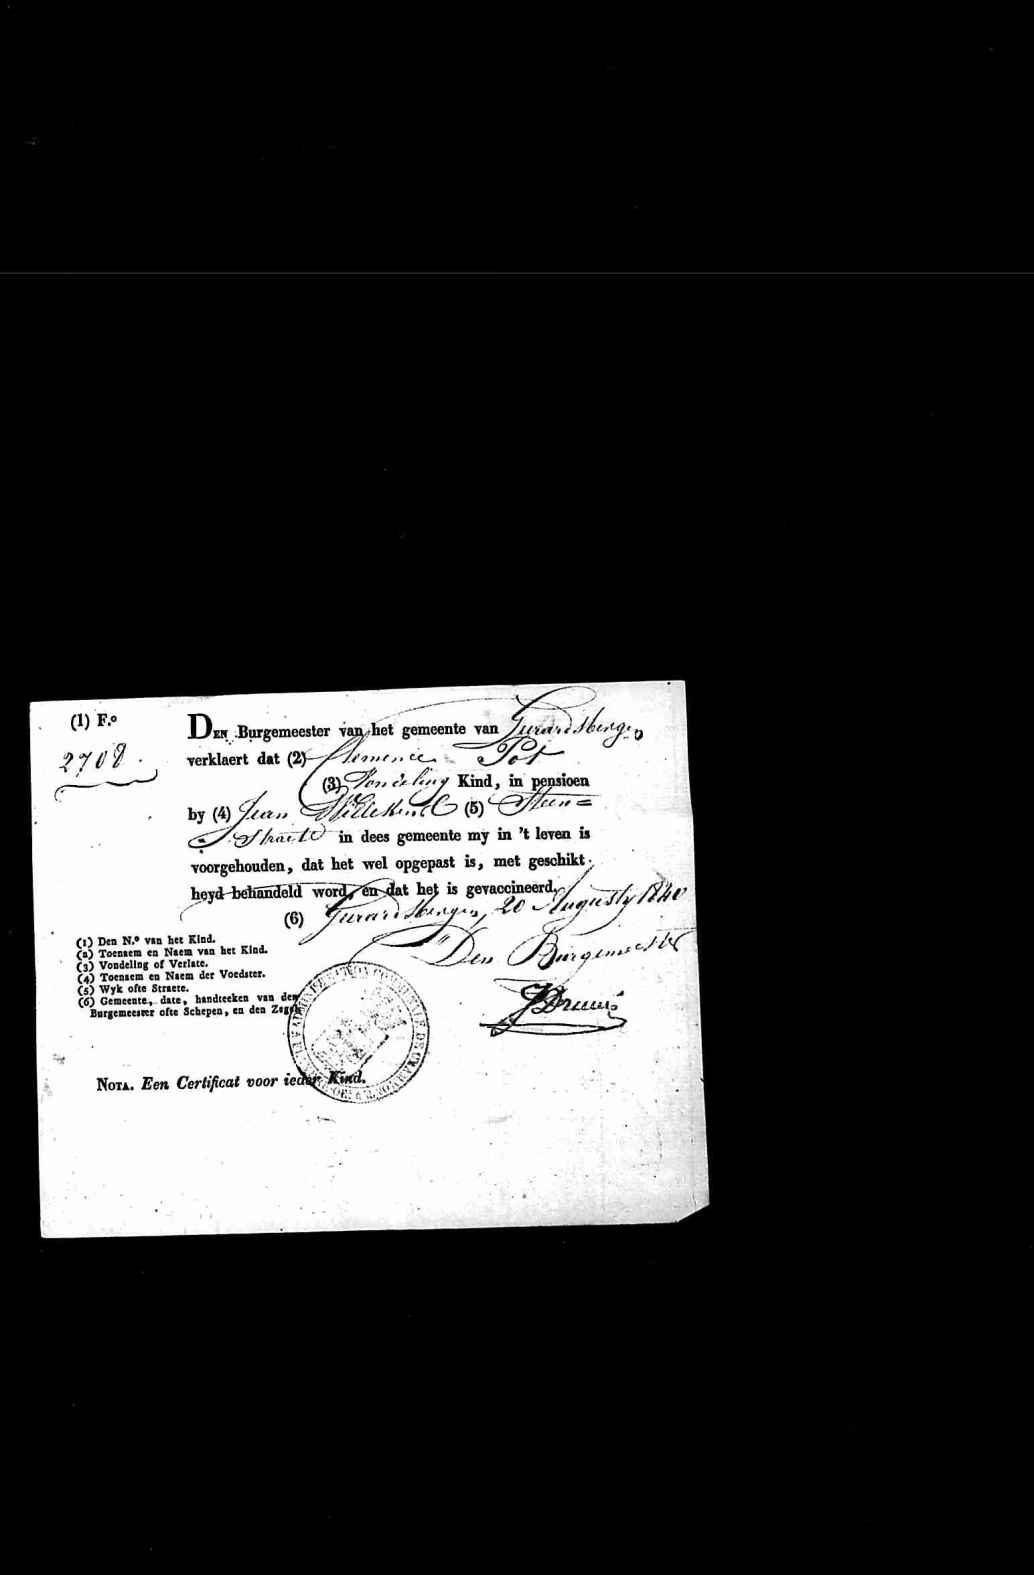 (1) F.º
2708.
DEN Burgemeester van het gemeente van Gerardsbergen
verklaert dat (2) Clemence Pot
(3) Vondeling Kind, in pensioen
by (4) Jean Willekens (5) Steen=
Straete in dees gemeente my in 't leven is
voorgehouden, dat het wel opgepast is, met geschikt-
heyd behandeld word, en dat het is gevaccineerd.
(6) Gerardsbergen, 20 Augusty 1840
Den Burgemeester
(1) Den N.º van het Kind.
(2) Toenaem en Naem van het Kind.
(3) Vondeling of Verlate.
(4) Toenaem en Naem der Voedster.
(5) Wyk ofte Straete.
(6) Gemeente, date, handteeken van den
Burgemeester ofte Schepen, en den Zegel.
NOTA. Een Certificat voor ieder Kind.